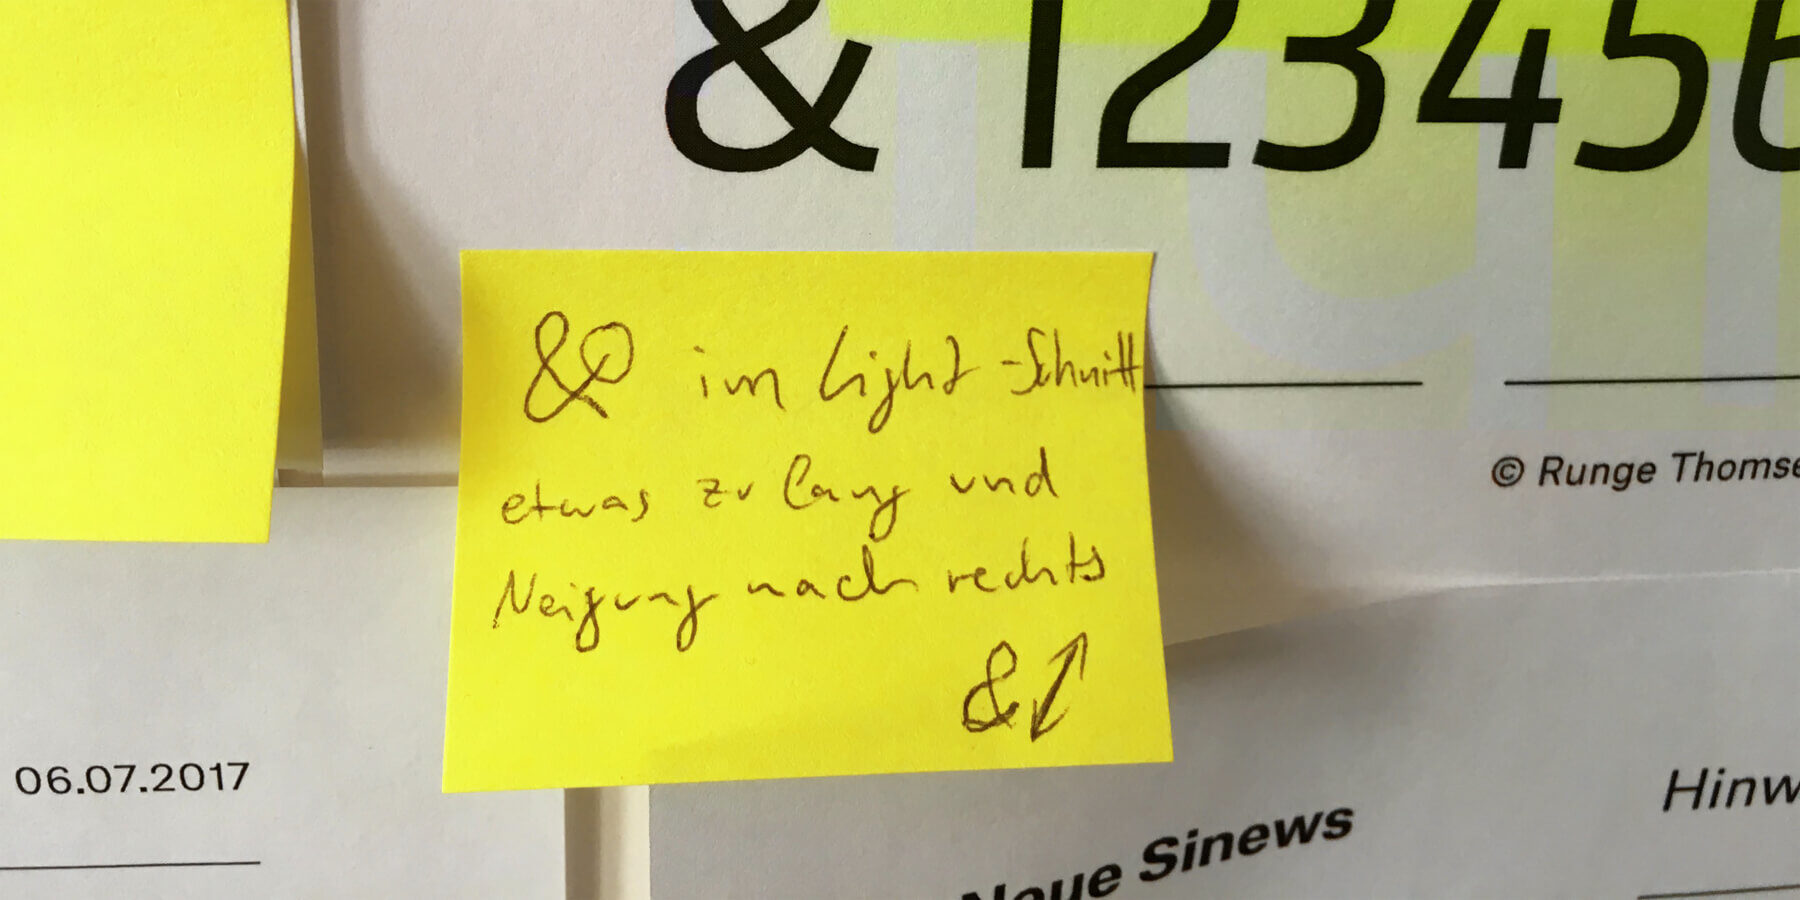 & 123456
& im Light-Schnitt
etwas zu lang und
Neigung nach rechts
&
© Runge
06.07.2017
Neue Sinews